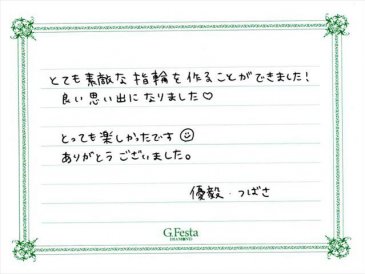 とても素敵な指輪を作ることができました!
良い思い出になりました♡
とっても楽しかったです☺
ありがとうございました。
優毅・つばさ
G.Festa
DIAMOND